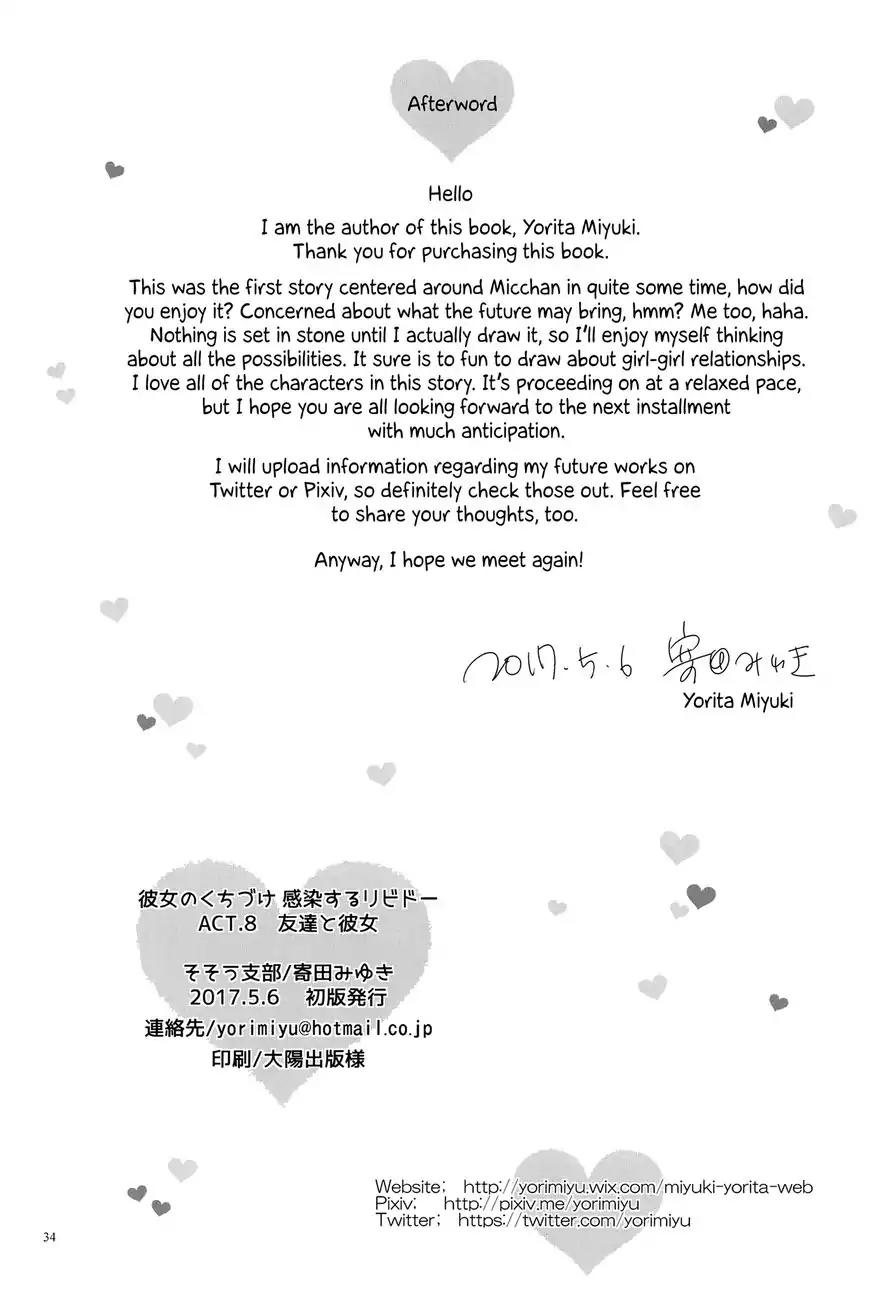 Afterword
Hello
I am the author of this book, Yorita Miyuki.
Thank you for purchasing this book.
This was the first story centered around Micchan in quite some time, how did
you enjoy it? Concerned about what the future may bring, hmm? Me too, haha.
Nothing is set in stone until I actually draw it, so I'll enjoy myself thinking
about all the possibilities. It sure is to fun to draw about girl-girl relationships.
I love all of the characters in this story. It's proceeding on at a relaxed pace,
but I hope you are all looking forward to the next installment
with much anticipation.
I will upload information regarding my future works on
Twitter or Pixiv, so definitely check those out. Feel free
to share your thoughts, too.
Anyway, I hope we meet again!
2017.5.6 寄田みゆき
Yorita Miyuki
彼女のくちづけ 感染するリビドー
ACT.8 友達と彼女
そそぅ支部/寄田みゆき
2017.5.6 初版発行
連絡先/yorimiyu@hotmail.co.jp
印刷/大陽出版様
Website; http://yorimiyu.wix.com/miyuki-yorita-web
Pixiv; http://pixiv.me/yorimiyu
Twitter; https://twitter.com/yorimiyu
34